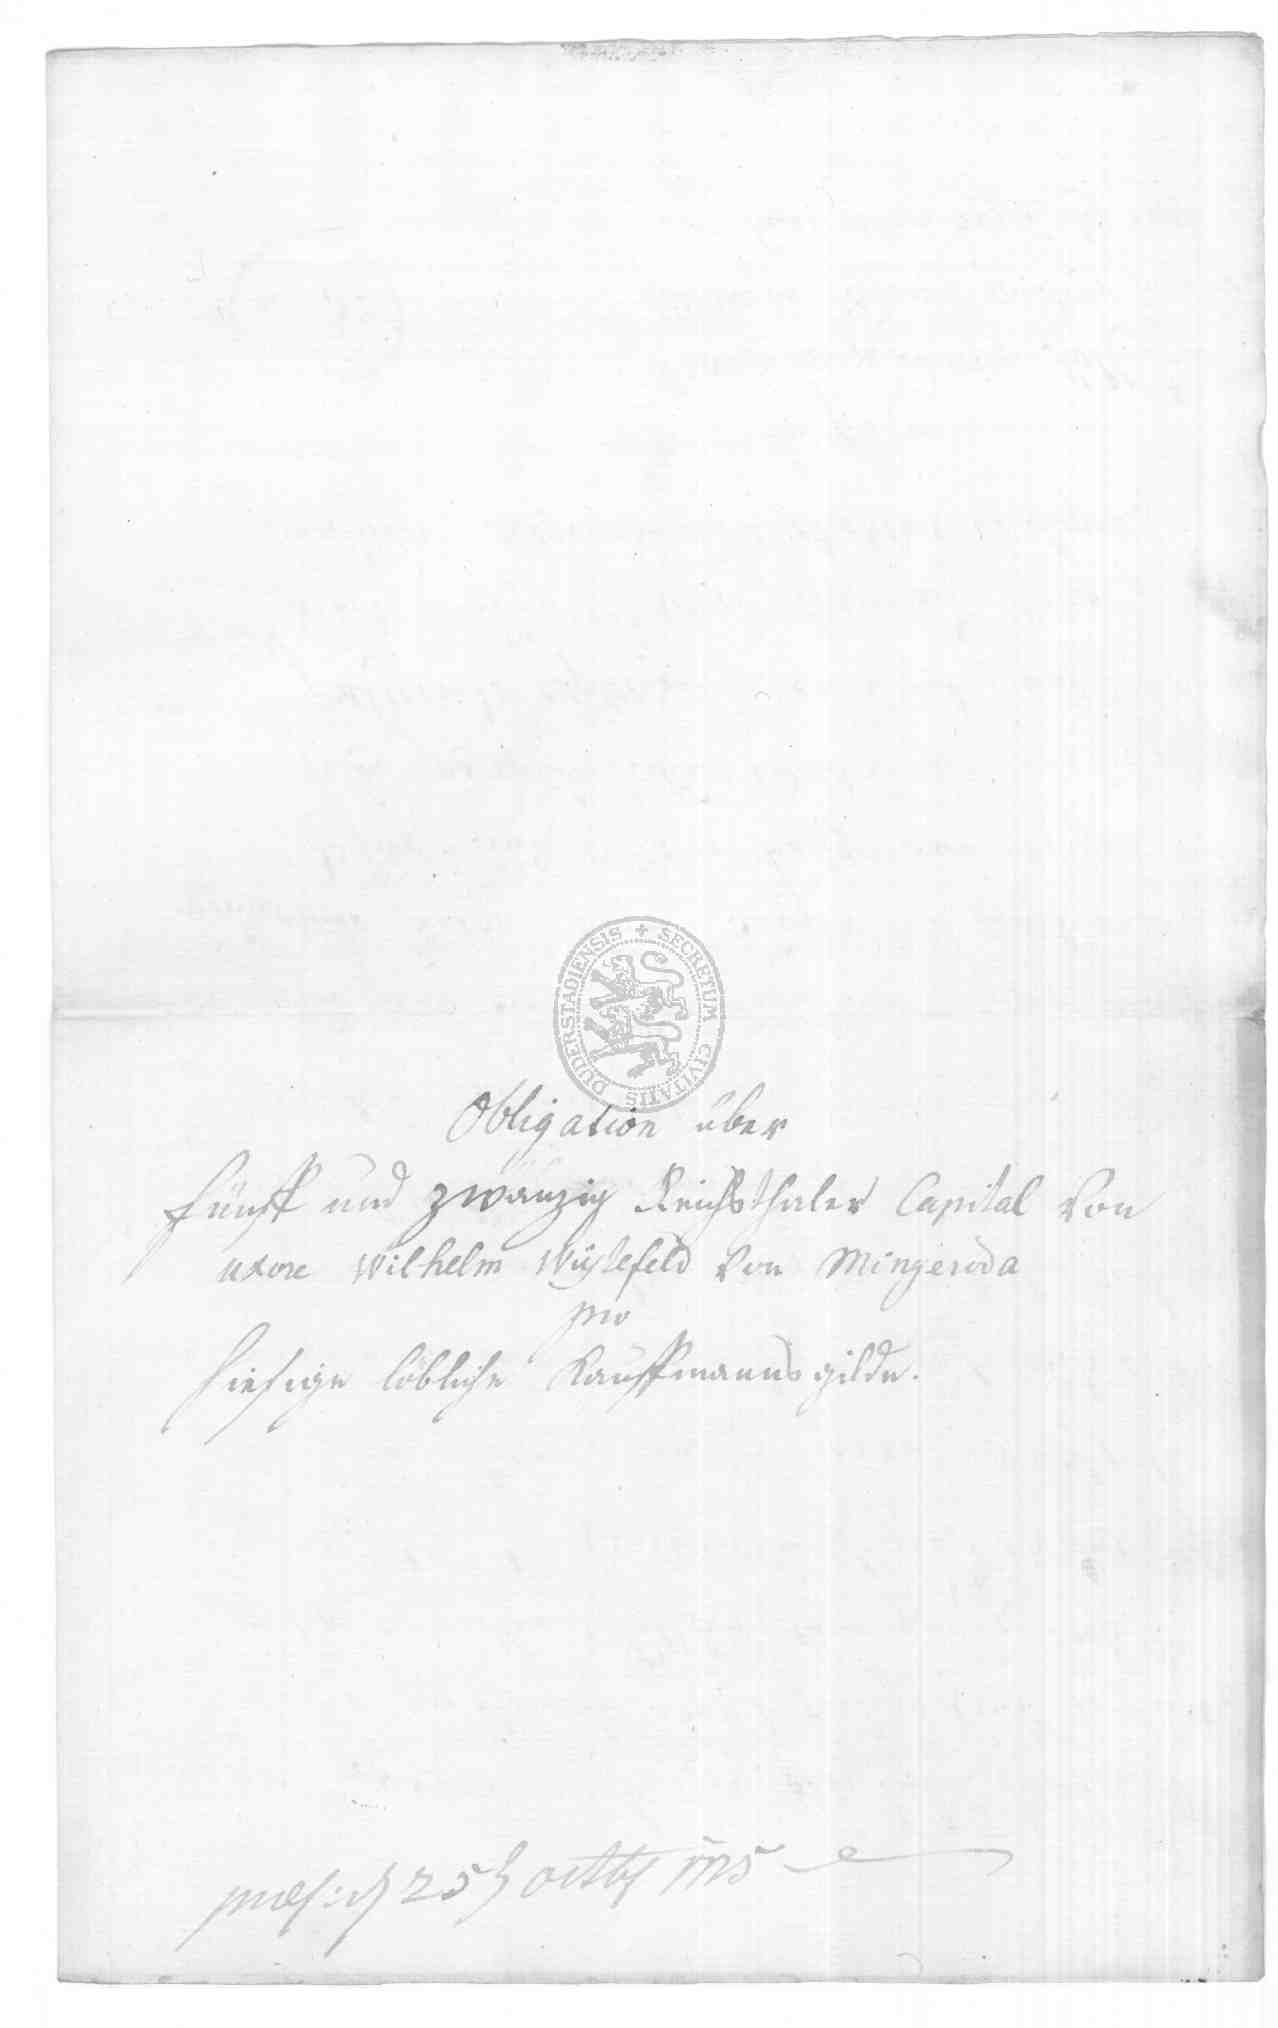 SECRETUM CIVITATIS DUDERSTADIENSIS
Obligation über
fünff und zwanzig Reichsthaler Capital von
uxore Wilhelm Wüstefeld von Mingeroda
pro
hiesige löbliche Kauffmanns gilde.
25 octbr